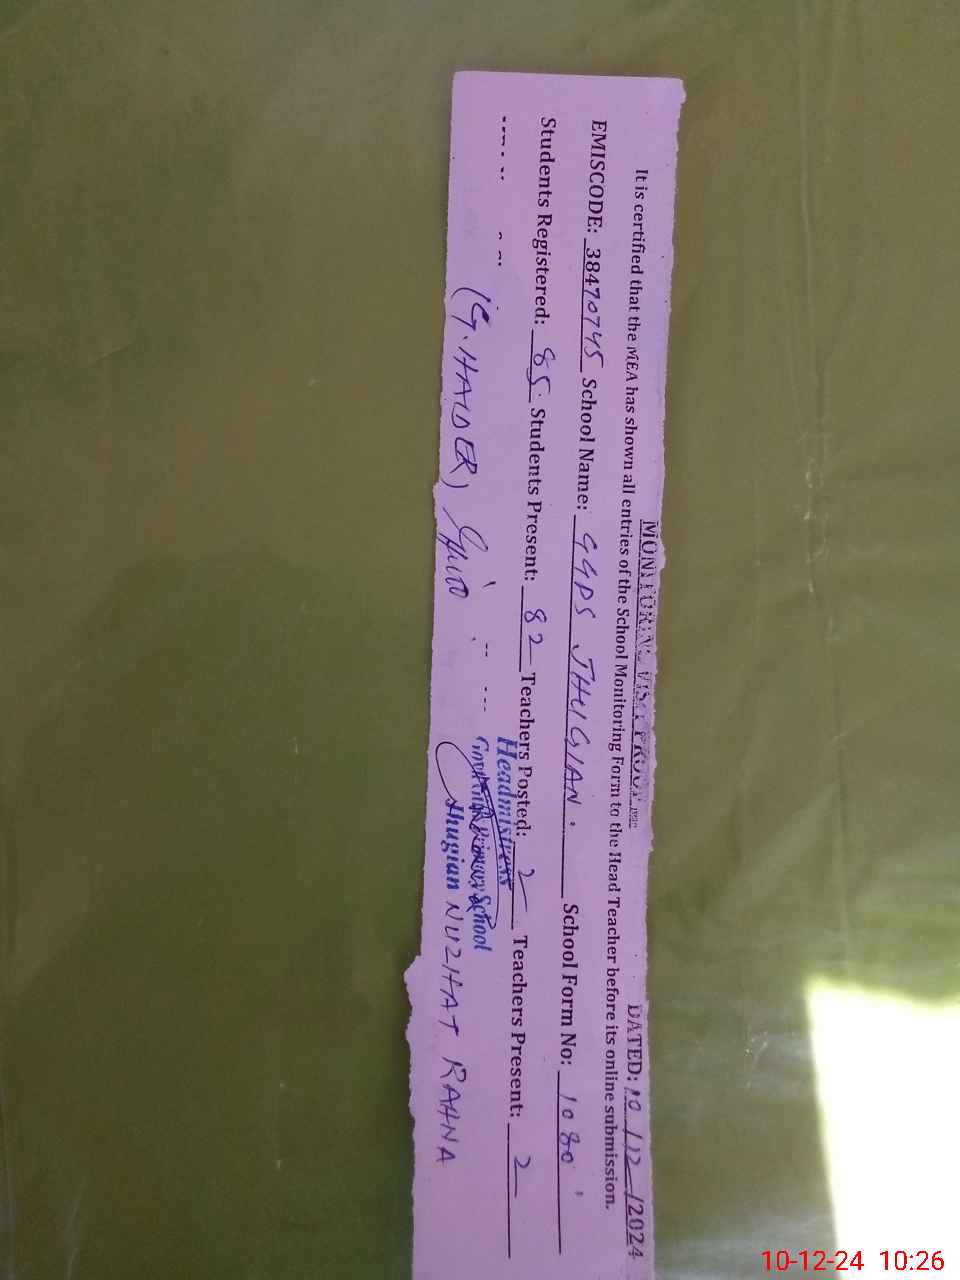 MONITORING VISIT PROOF
DATED: 10/12/2024
It is certified that the MEA has shown all entries of the School Monitoring Form to the Head Teacher before its online submission.
EMISCODE: 38470745 School Name: GGPS JHUGIAN. School Form No: 1080
Students Registered: 85 Students Present: 82 Teachers Posted: 2 Teachers Present: 2
(G. HAIDER)
Headmistress
Govt. Primary School
Jhugian NUZHAT RAHNA
10-12-24 10:26